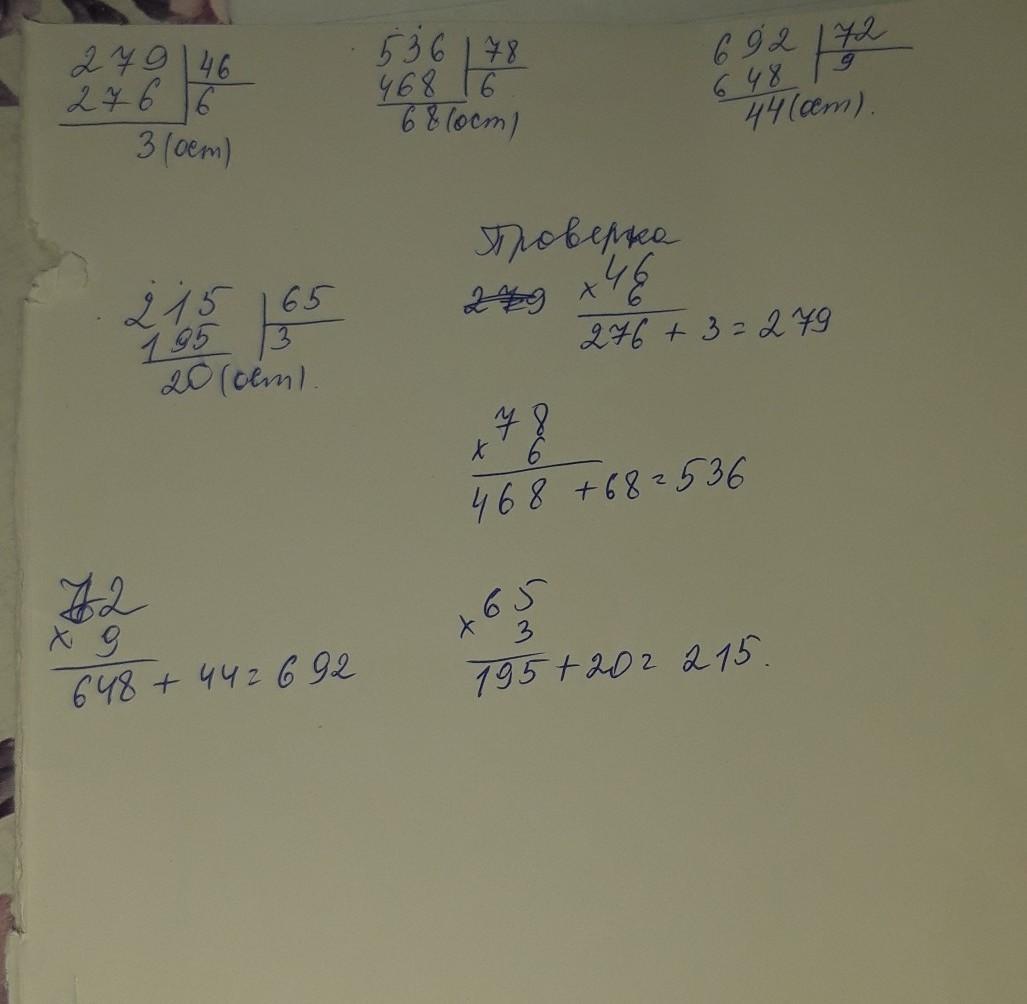 279 46
276 6
3 (ост)
536 78
468 6
68 (ост)
692 72
648 9
44 (ост).
215 65
195 3
20 (ост).
Проверка
279
46
× 6
276 + 3 = 279
78
× 6
468 + 68 = 536
72
× 9
648 + 44 = 692
× 65
3
195 + 20 = 215.